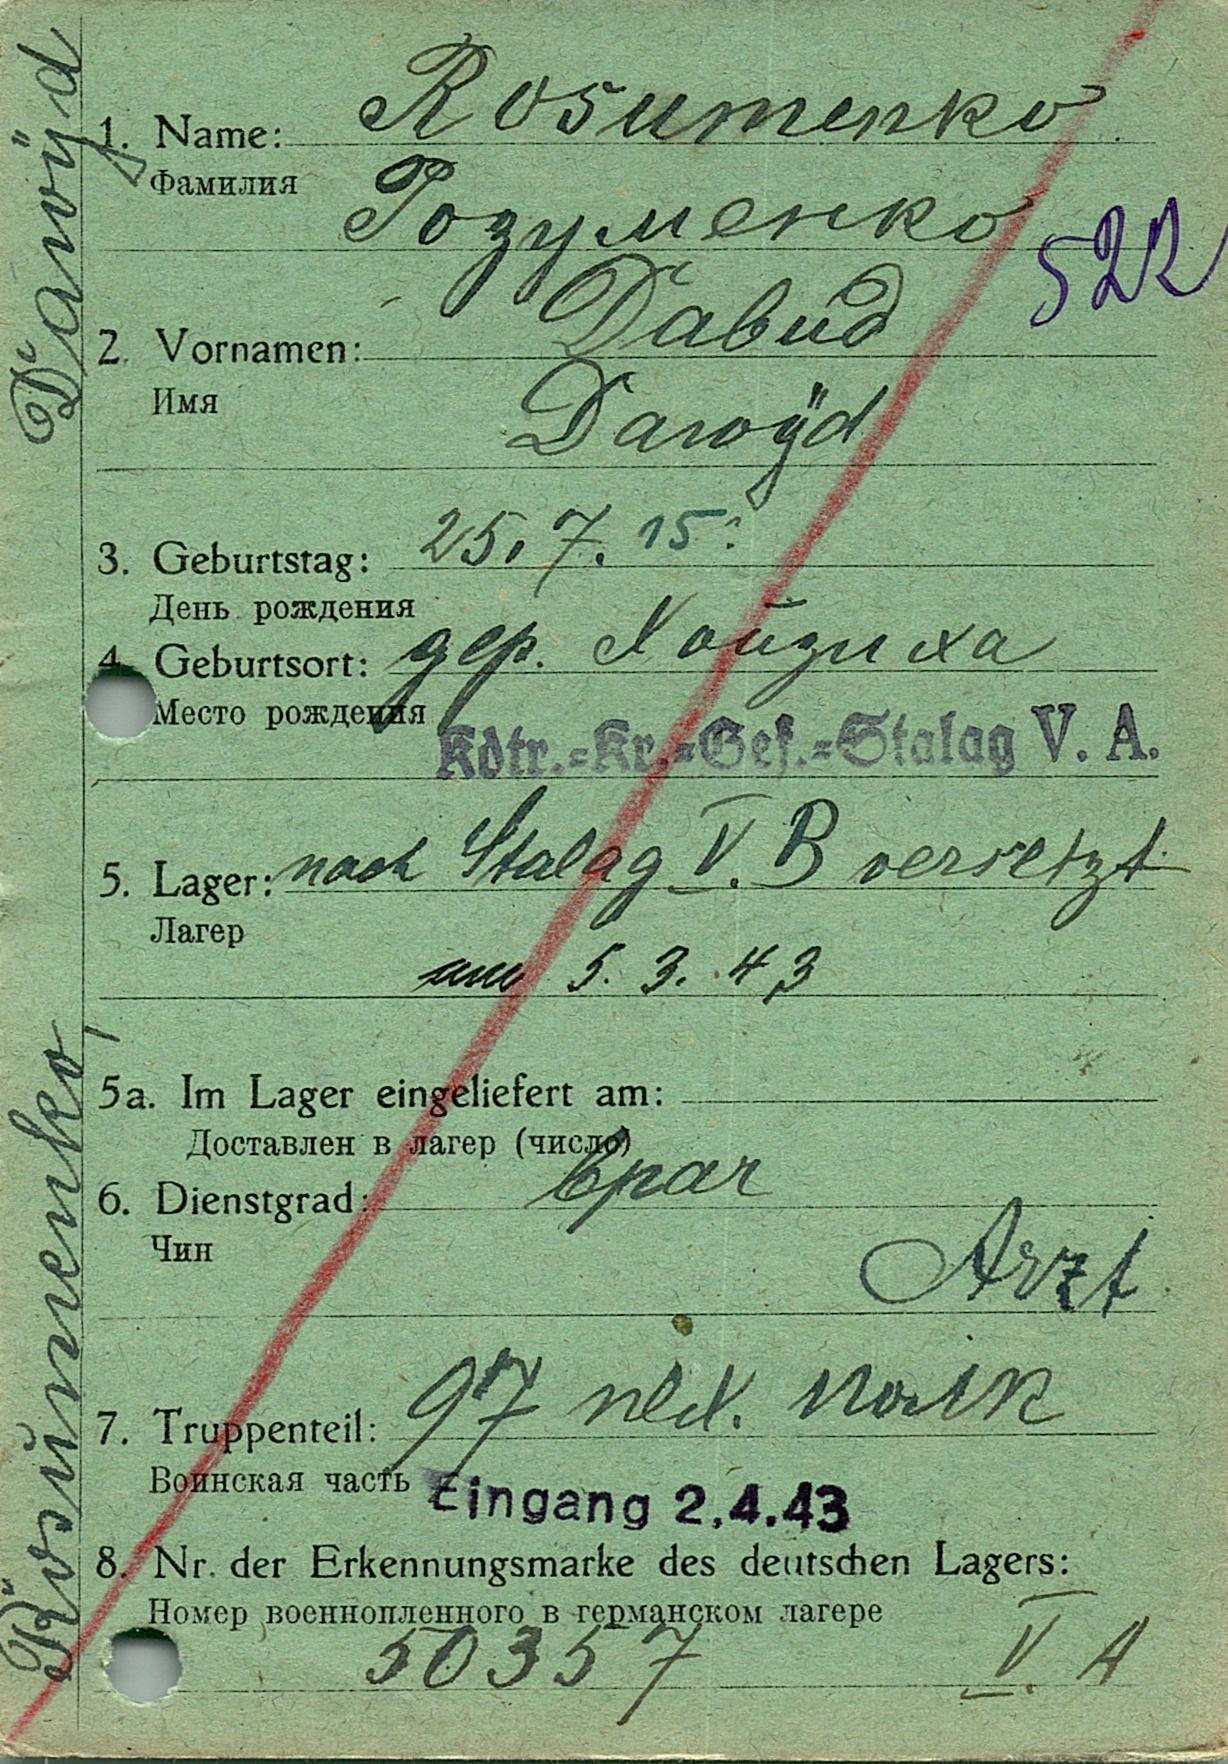 Dawÿd
Rosumenko,
1. Name: Rosumenko
Фамилия
Розуменко
522
2. Vornamen: Давид
Имя
Dawÿd
3. Geburtstag: 25.7.15.
День рождения
4. Geburtsort: дер.
Место рождения
Kdtr.=Kr.=Gef.=Stalag V. A.
5. Lager: nach Stalag V. B versetzt
Лагер
am 5. 3. 43
5a. Im Lager eingeliefert am:
Доставлен в лагер (число)
6. Dienstgrad: врач
Чин
Arzt
7. Truppenteil: 97 пех. полк
Воинская часть
Eingang 2.4.43
8. Nr. der Erkennungsmarke des deutschen Lagers:
Номер военнопленного в германском лагере
50357 V. A